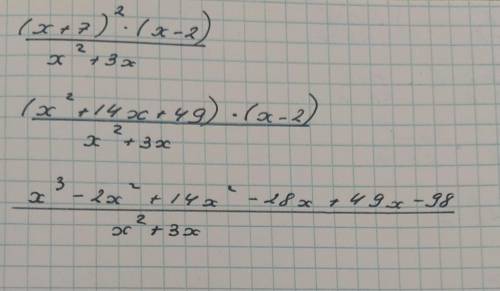 (x+7)² · (x-2)
x² + 3x
(x² + 14x + 49) · (x-2)
x² + 3x
x³ - 2x² + 14x² - 28x + 49x - 98
x² + 3x